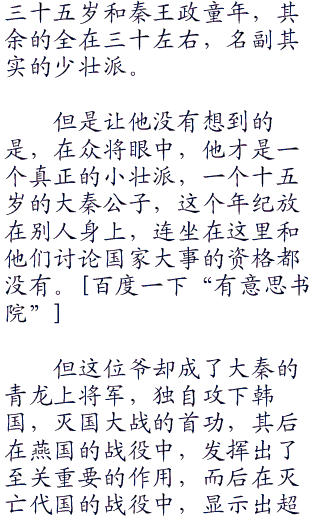 三十五岁和秦王政童年，其
余的全在三十左右，名副其
实的少壮派。
但是让他没有想到的
是，在众将眼中，他才是一
个真正的小壮派，一个十五
岁的大秦公子，这个年纪放
在别人身上，连坐在这里和
他们讨论国家大事的资格都
没有。[百度一下“有意思书
院”]
但这位爷却成了大秦的
青龙上将军，独自攻下韩
国，灭国大战的首功，其后
在燕国的战役中，发挥出了
至关重要的作用，而后在灭
亡代国的战役中，显示出超